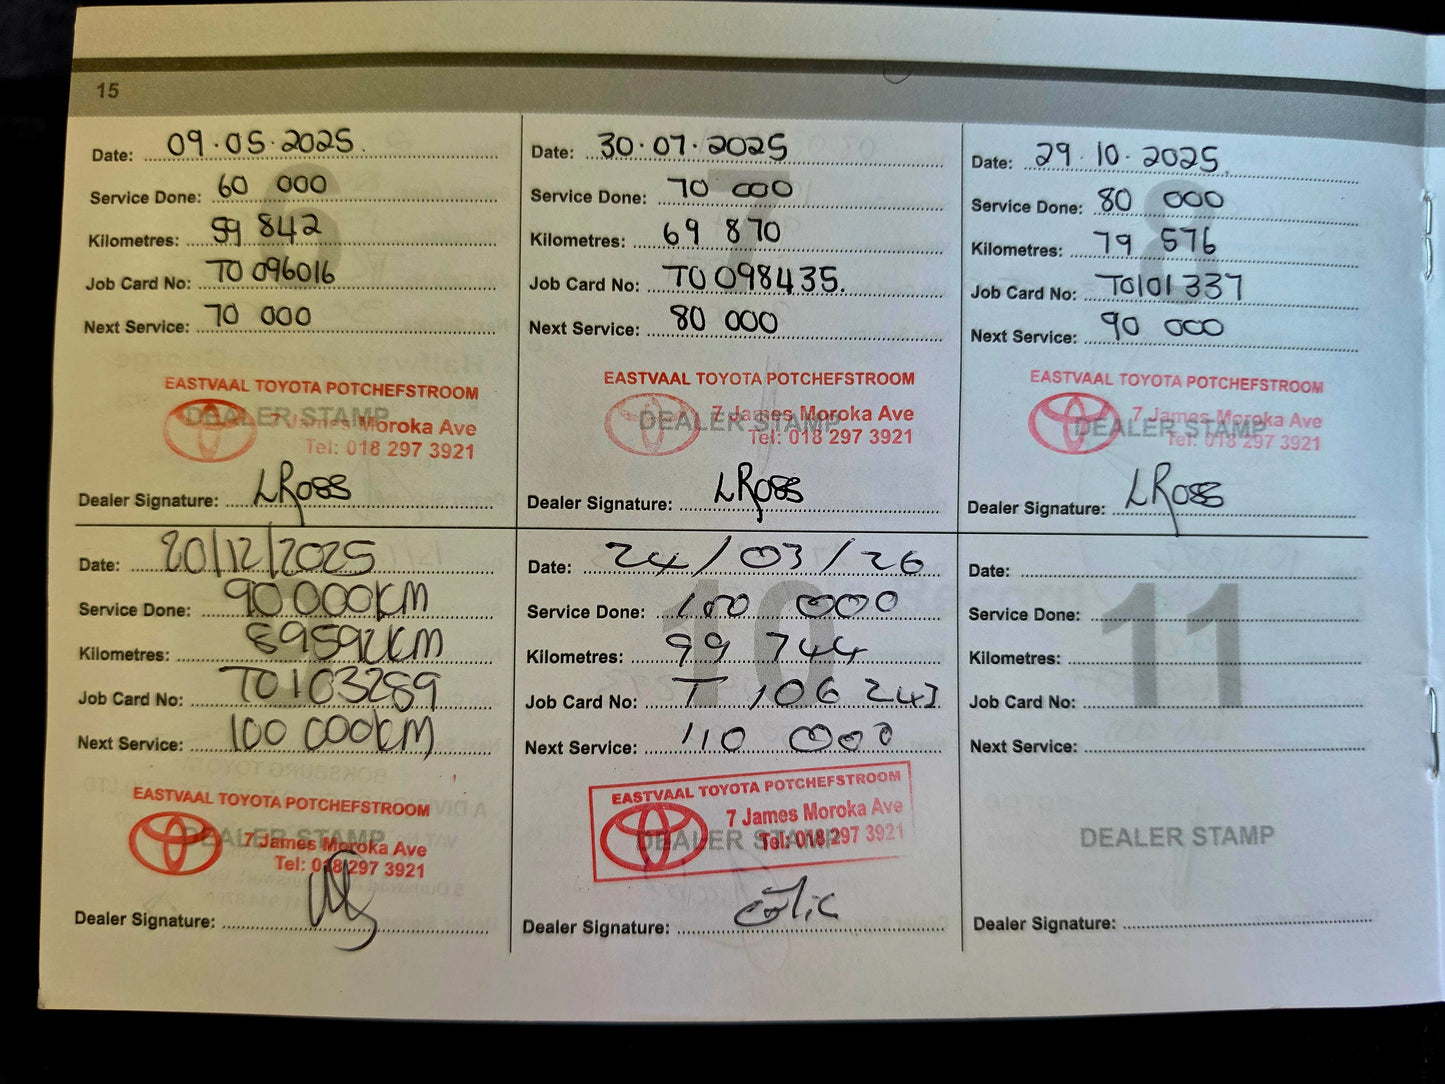 15
Date: 09.05.2025.
Service Done: 60 000
Kilometres: 59 842
Job Card No: TO 096016
Next Service: 70 000
6
EASTVAAL TOYOTA POTCHEFSTROOM
DEALER STAMP
7 James Moroka Ave
Tel: 018 297 3921
Dealer Signature: L Ross
Date: 30.07.2025
Service Done: 70 000
Kilometres: 69 870
Job Card No: TO 098435.
Next Service: 80 000
7
EASTVAAL TOYOTA POTCHEFSTROOM
DEALER STAMP
7 James Moroka Ave
Tel: 018 297 3921
Dealer Signature: L Ross
Date: 29.10.2025
Service Done: 80 000
Kilometres: 79 576
Job Card No: TO101 337
Next Service: 90 000
8
EASTVAAL TOYOTA POTCHEFSTROOM
DEALER STAMP
7 James Moroka Ave
Tel: 018 297 3921
Dealer Signature: L Ross
Date: 20/12/2025
Service Done: 90 000KM
Kilometres: 89592KM
Job Card No: TO103289
Next Service: 100 000KM
EASTVAAL TOYOTA POTCHEFSTROOM
DEALER STAMP
7 James Moroka Ave
Tel: 018 297 3921
Dealer Signature:
Date: 24/03/26
Service Done: 100 000
Kilometres: 99 744
Job Card No: T 106 243
Next Service: 110 000
10
EASTVAAL TOYOTA POTCHEFSTROOM
DEALER STAMP
7 James Moroka Ave
Tel: 018 297 3921
Dealer Signature:
Date:
Service Done:
Kilometres:
Job Card No:
Next Service:
11
DEALER STAMP
Dealer Signature: